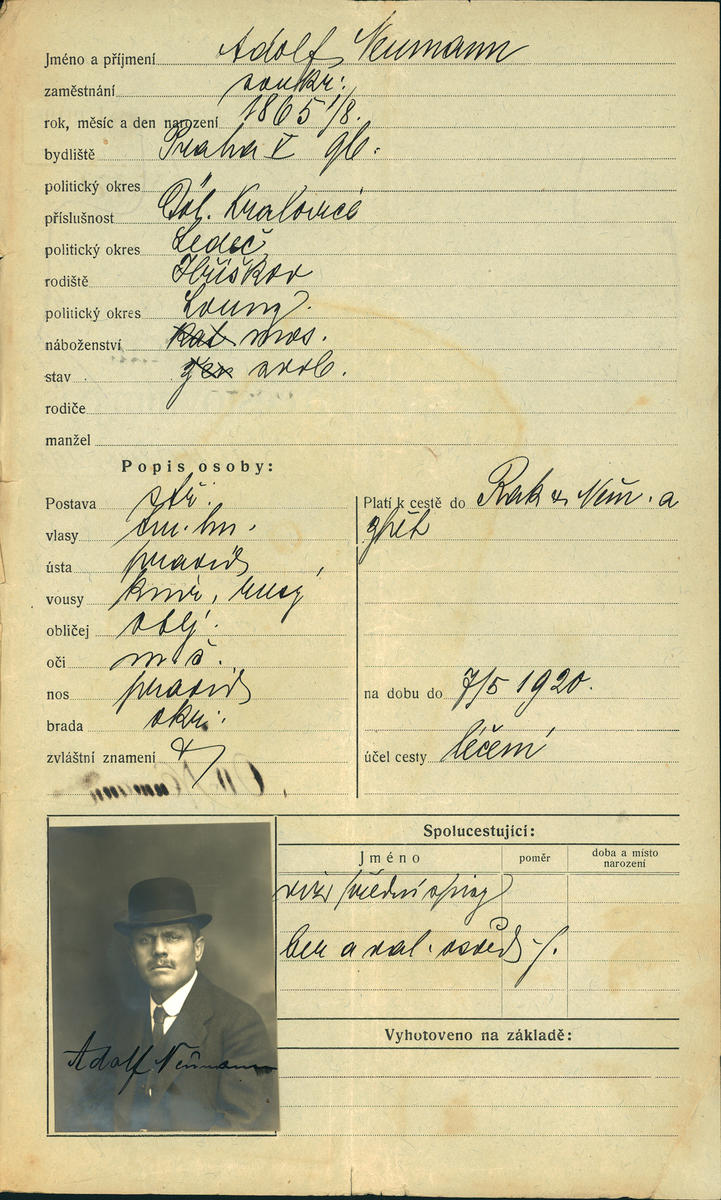 Jméno a příjmení Adolf Neumann
zaměstnání soukr:
rok, měsíc a den narození 1865 1/8.
bydliště Praha V
politický okres
příslušnost Dol. Kralovice
politický okres Ledeč
rodiště Hříškov
politický okres Louny.
náboženství kat mos.
stav svob.
rodiče
manžel
Popis osoby:
Postava stř.
vlasy tm. hn.
ústa pravid
vousy knír, rusý
obličej oblý.
oči m. š.
nos pravid
brada okr.:
zvláštní znamení
Platí k cestě do Rak. a Něm. a
zpět
na dobu do 7/5 1920.
účel cesty léčení
Spolucestující:
Jméno poměr doba a místo
narození
viz úřední spisy
ber a val. osvěd
Vyhotoveno na základě:
Adolf Neumann